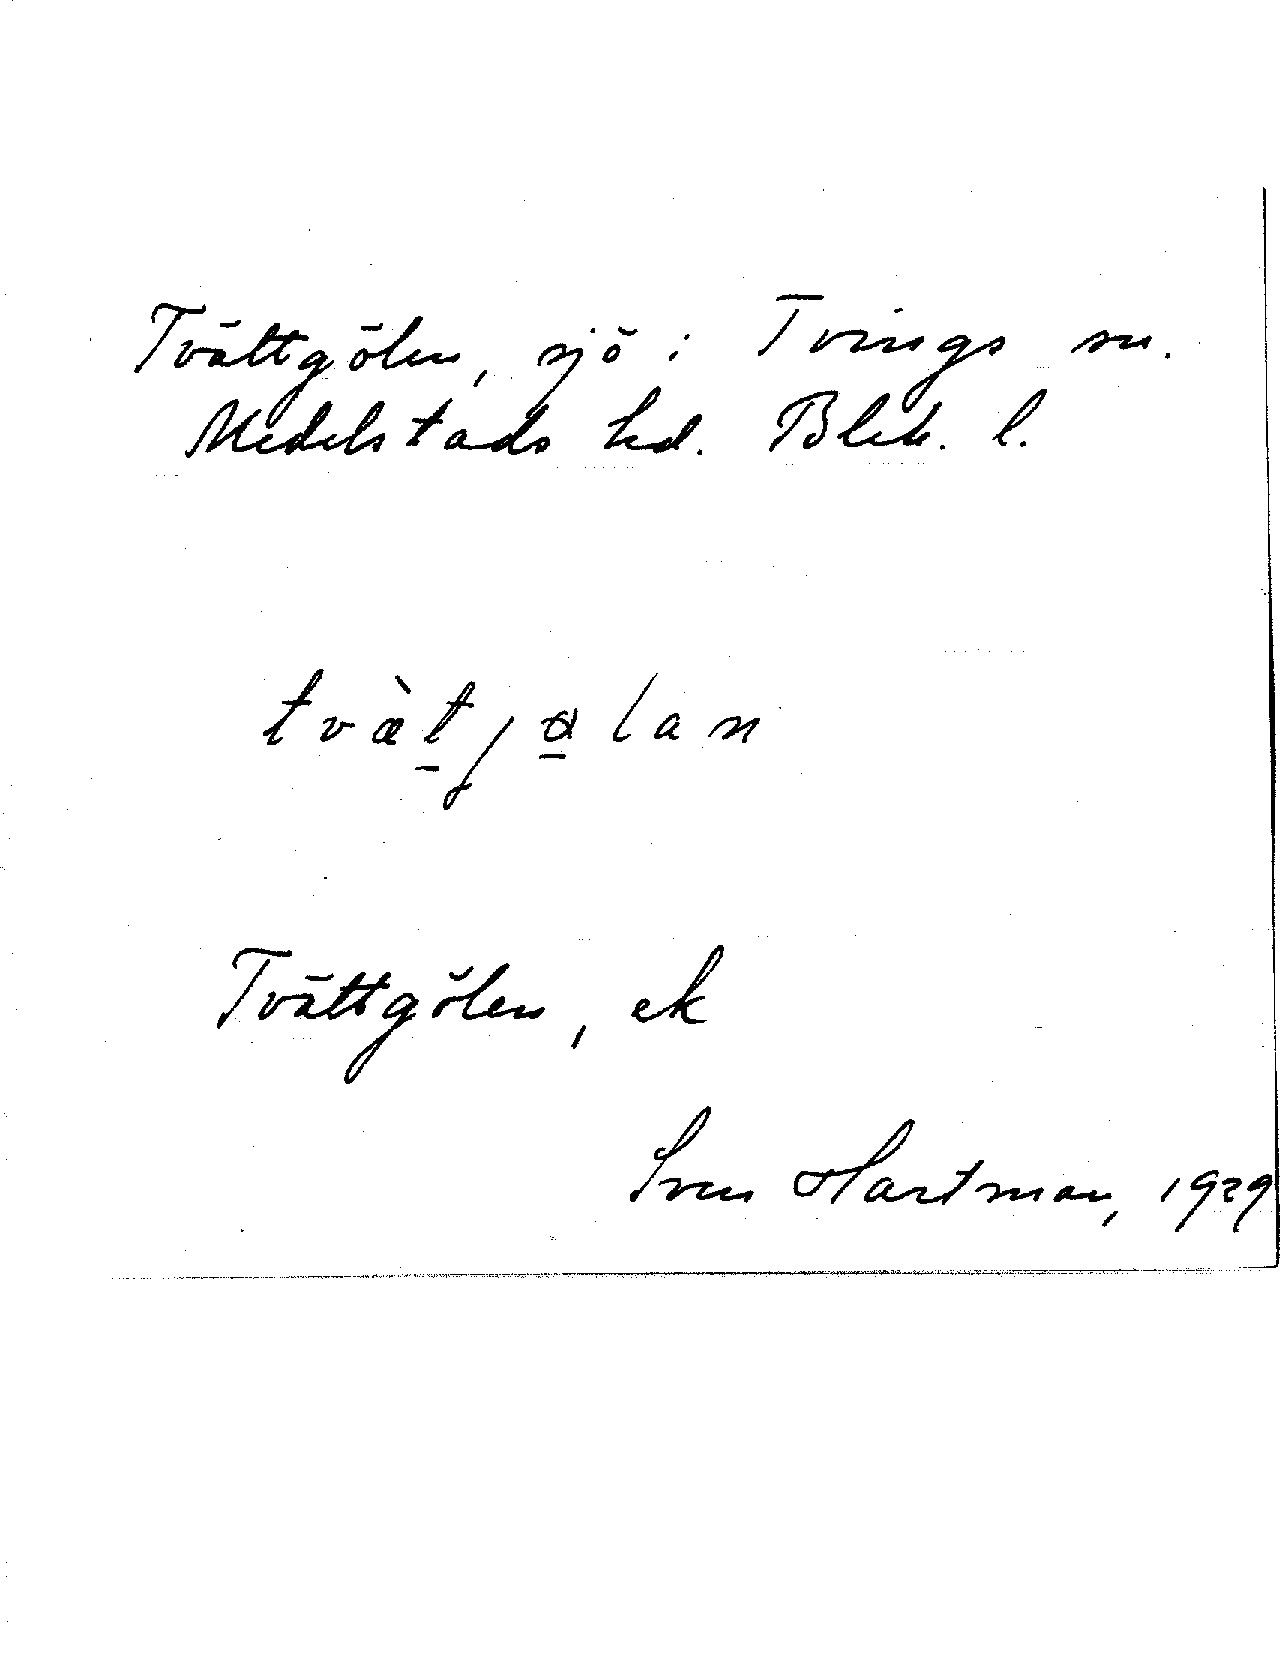 Tvättgölen, sjö i Tvings sn.
Medelstads hd. Blek. l.
tvæ̀t̲jø̲lan
Tvättgölen, ek
Sven Hartman, 1929